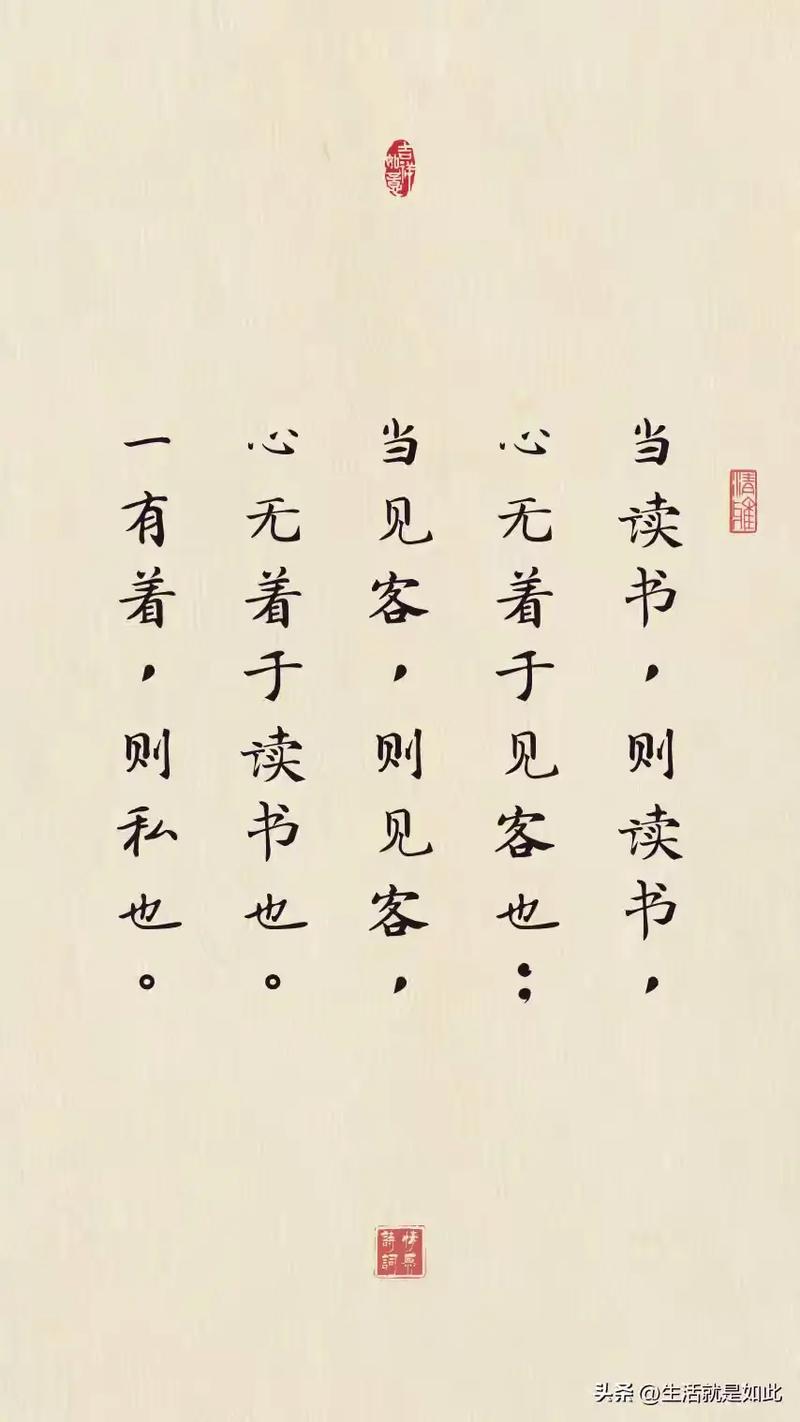 吉祥如意
清雅
当读书，则读书，
心无着于见客也；
当见客，则见客，
心无着于读书也。
一有着，则私也。
诗词
头条 @生活就是如此